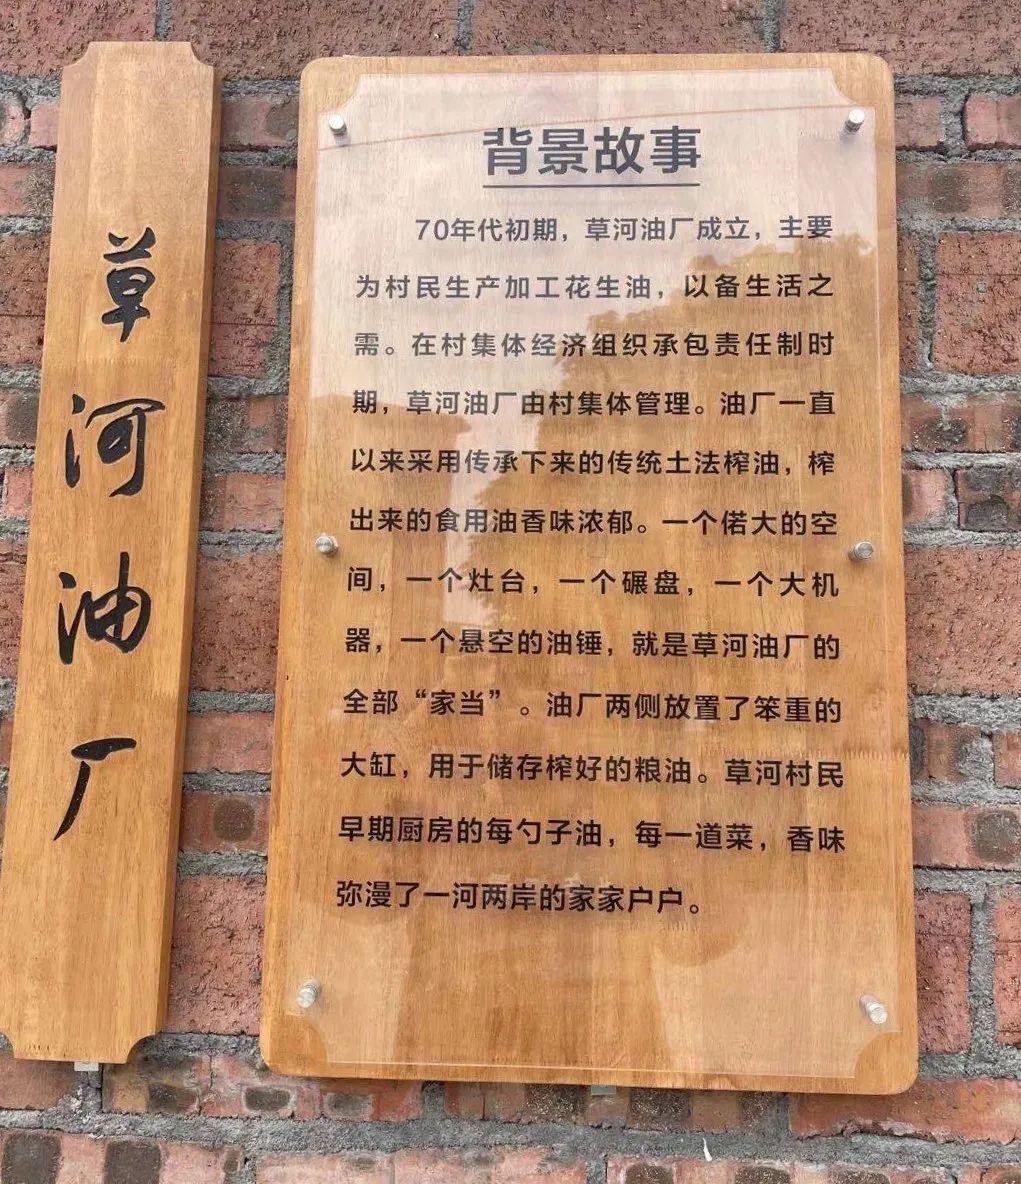 草河油厂
背景故事
70年代初期，草河油厂成立，主要
为村民生产加工花生油，以备生活之
需。在村集体经济组织承包责任制时
期，草河油厂由村集体管理。油厂一直
以来采用传承下来的传统土法榨油，榨
出来的食用油香味浓郁。一个偌大的空
间，一个灶台，一个碾盘，一个大机
器，一个悬空的油锤，就是草河油厂的
全部“家当”。油厂两侧放置了笨重的
大缸，用于储存榨好的粮油。草河村民
早期厨房的每勺子油，每一道菜，香味
弥漫了一河两岸的家家户户。